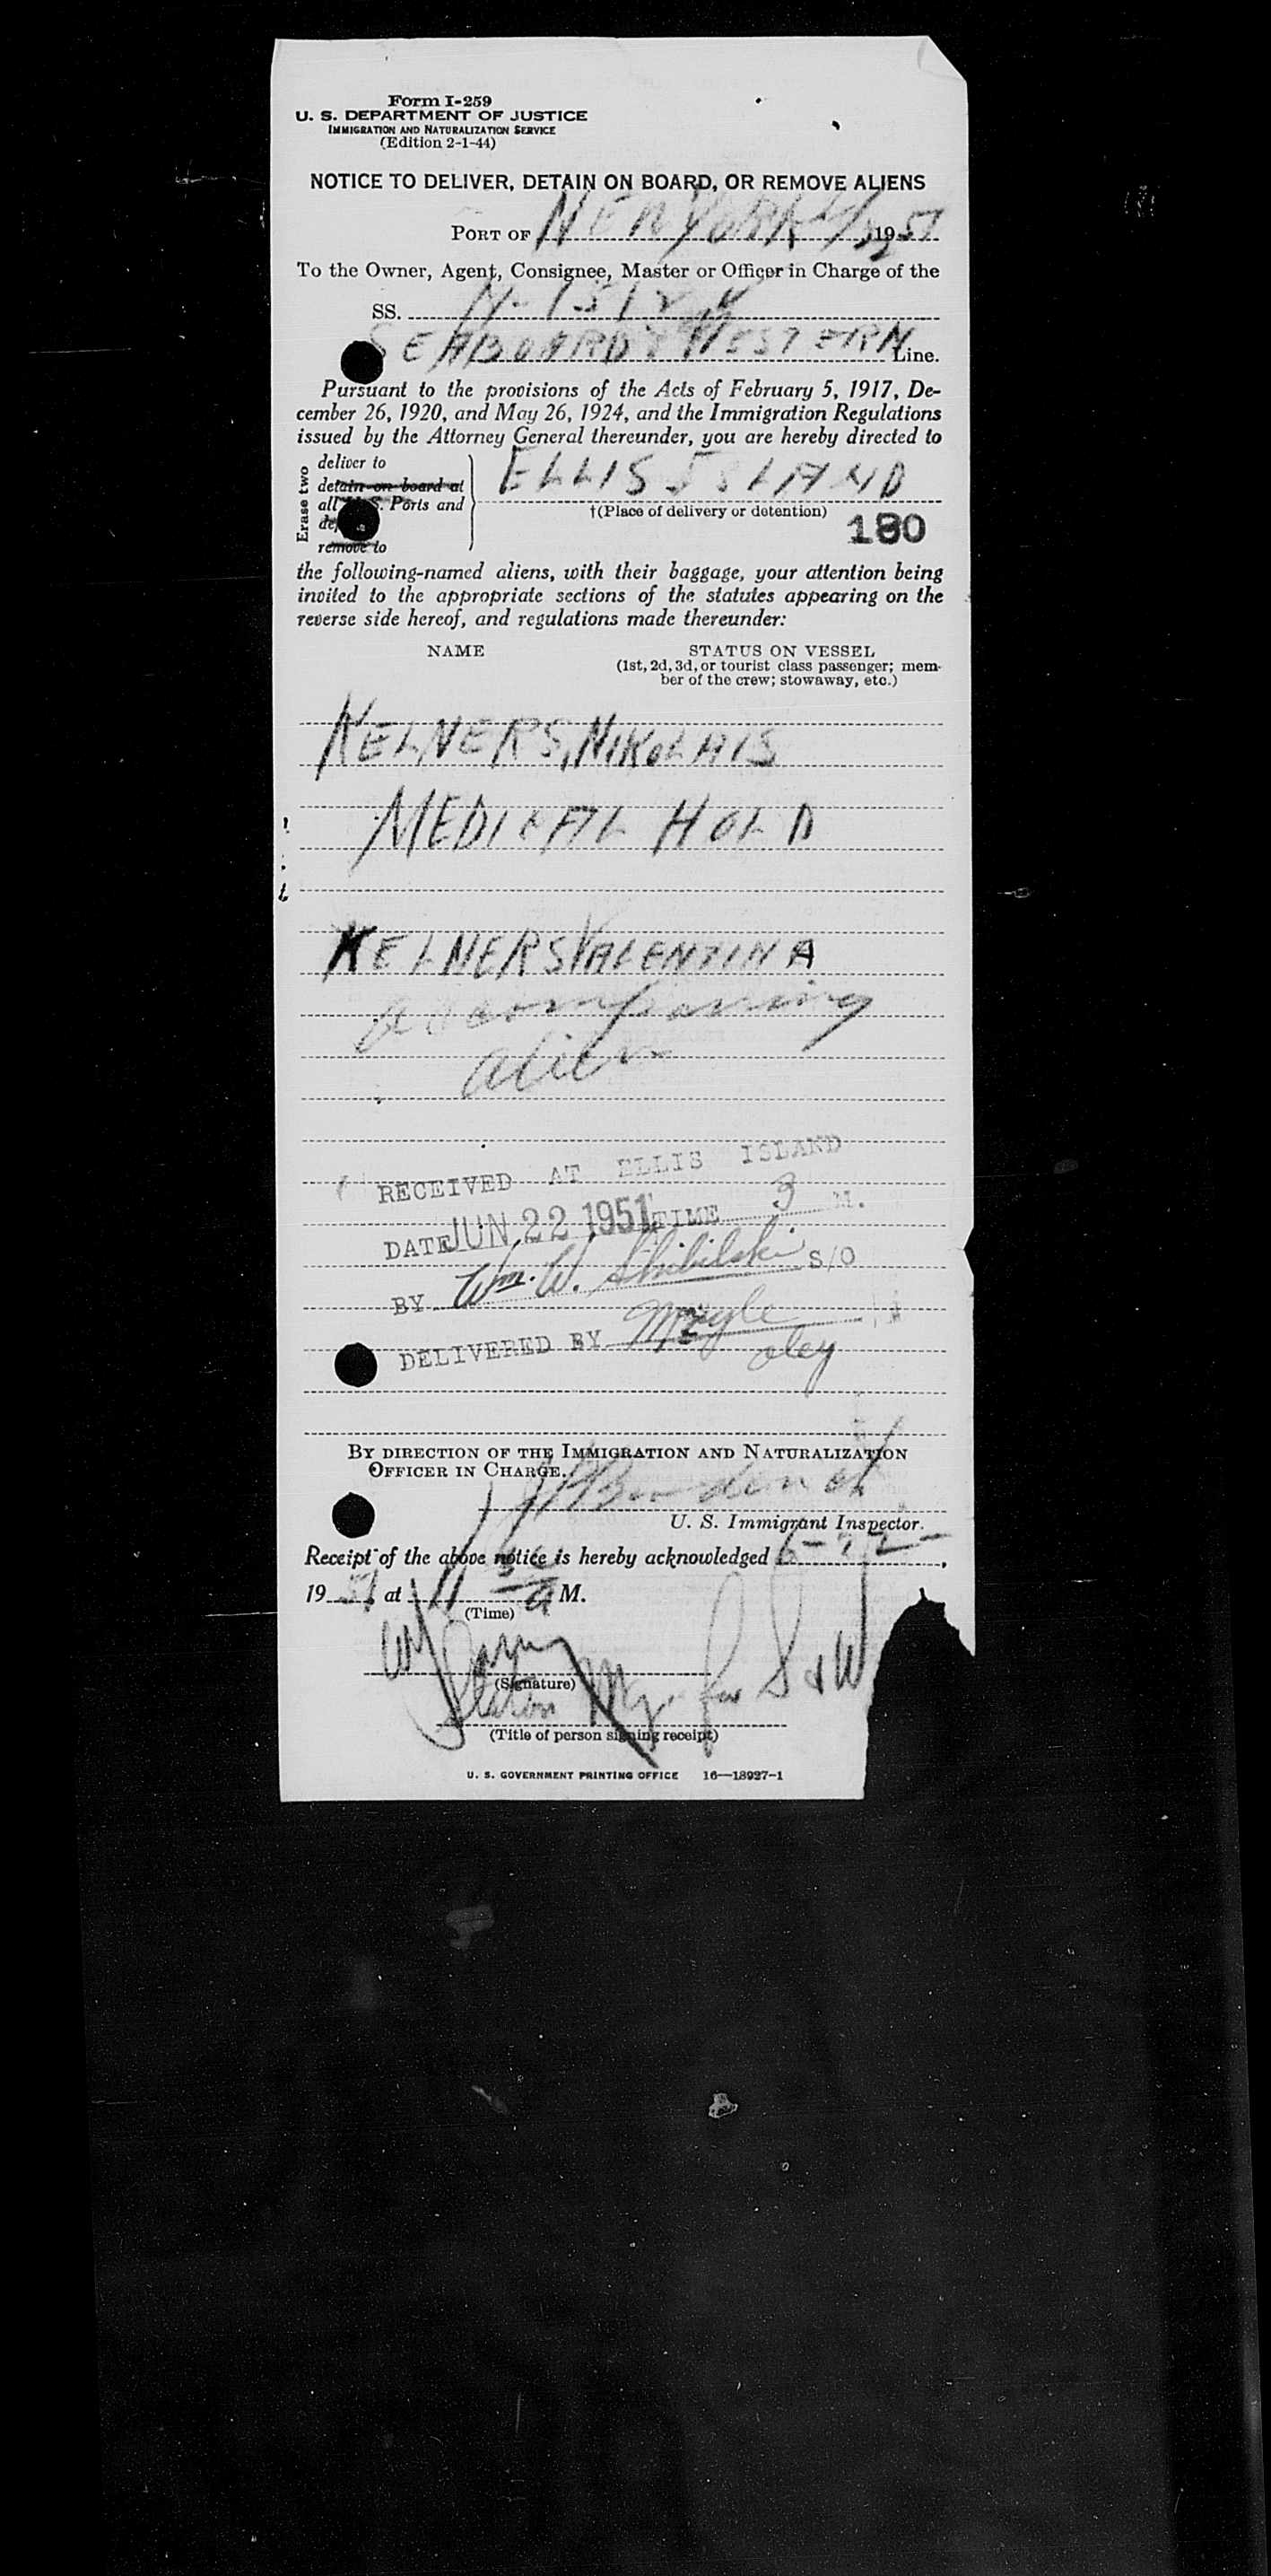 Form I-259
U. S. DEPARTMENT OF JUSTICE
IMMIGRATION AND NATURALIZATION SERVICE
(Edition 2-1-44)
NOTICE TO DELIVER, DETAIN ON BOARD, OR REMOVE ALIENS
PORT OF NEW YORK, 1951
To the Owner, Agent, Consignee, Master or Officer in Charge of the
SS. N-1512V
SEABOARD & WESTERN Line.
Pursuant to the provisions of the Acts of February 5, 1917, De-
cember 26, 1920, and May 26, 1924, and the Immigration Regulations
issued by the Attorney General thereunder, you are hereby directed to
Erase two
deliver to
detain on board at
all U. S. Ports and
remove to
ELLIS ISLAND
†(Place of delivery or detention)
180
the following-named aliens, with their baggage, your attention being
invited to the appropriate sections of the statutes appearing on the
reverse side hereof, and regulations made thereunder:
NAME STATUS ON VESSEL
(1st, 2d, 3d, or tourist class passenger; mem-
ber of the crew; stowaway, etc.)
KELNERS, NIKOLAIS
MEDICAL HOLD
KELNERS VALENTINA
accompanying
alien
RECEIVED AT ELLIS ISLAND
DATE JUN 22 1951 TIME 3 M.
BY Wm. W. S/O
DELIVERED BY
BY DIRECTION OF THE IMMIGRATION AND NATURALIZATION
OFFICER IN CHARGE.
U. S. Immigrant Inspector.
Receipt of the above notice is hereby acknowledged 6-22-,
1951 at 11 30 A M.
(Time)
(Signature)
Station Mgr. for S & W
(Title of person signing receipt)
U. S. GOVERNMENT PRINTING OFFICE 16—18927-1